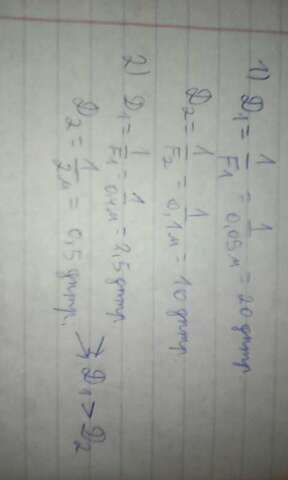 1) D₁ = 1/F₁ = 1/0,05м = 20 дптр.
D₂ = 1/F₂ = 1/0,1м = 10 дптр.
2) D₁ = 1/F₁ = 1/0,4м = 2,5 дптр.
D₂ = 1/2м = 0,5 дптр. => D₁ > D₂